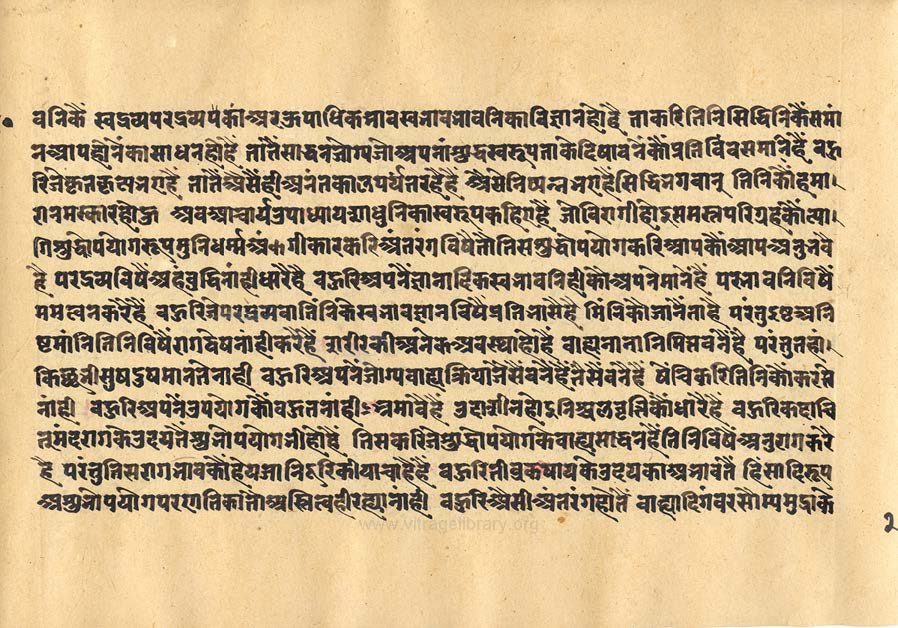 वनिकैं स्वद्रव्यपरद्रव्यपकां अरउपाधिकभावस्वभावभावनिकाविज्ञानहोहै ताकरितिनिसिद्धिनिकैंसमां
नआपहोनेंकासाधनहोहै तातैंसाधनजोग्यजोअपनांशुद्धस्वरूपताकेदिषावनेंकौंप्रतिबिंबसमानिहैं बहु
रिजेकृतकृत्यभएहैं तातैंअैसैंहीअनंतकालपर्यंतरहैहैं अैसेनिष्पन्नभएहैसिद्धिभगवान् तिनिकौंहमा।
रानमस्कारहोहु अबआचार्यउपाध्यायसाधुनिकास्वरूपकहिएहै जोविरागीहोइसमस्तपरिग्रहकौंत्या।
गिशुद्धोपयोगरूपमुनिधर्म्मअंगीकारकरिअंतरंगविषैंतौतिसशुद्धोपयोगकरिआपकौंआपअनुभवै
हैं परद्रव्यविषैंअहंबुद्धिनांहीधारैहैं बहुरिअपनैंज्ञानादिकस्वभावनिहीकौंअपनेमानेंहैं परभावनिविषैं
ममत्वनकरैंहैं बहुरिजेपरद्रव्यवातिनिकेस्वभावज्ञानविषैंप्रतिभासैहैं तिनिकौंजानैंतोहै परंतुइष्टअनि
ष्टमांनितिनिविषैंरागद्वेषनांहीकरैंहैं शरीरकीअनेकअवस्थाहोहै बाह्यनानानिमित्तबनेंहै परंतुतहां।
किछूभीसुषदुषमानतेनांही बहुरिअपनेंजोग्यबाह्यक्रियाजैसैंबनैंहैंतैसैंबनैंहैं षेंचिकरितिनिकौंकरते
नांही बहुरिअपनेंउपयोगकौंबहुतनांहीभ्रमावैहैं उदासीनहोइनिश्चलवृत्तिकौंधारैहैं बहुरिकदाचि
त्मंदरागकेउदयतैंशुभोपयोगभीहोहै तिसकरिजेशुद्धोपयोगकेबाह्यसाधनहैंतिनिविषैंअनुरागकरै
हैं परंतुतिसरागभावकौंहेयजानिदूरिकीयाचाहैहैं बहुरितीव्रकषायकेउदयकाअभावतैं हिंसादिरूप
अशुभोपयोगपरणतिकातोअस्तित्वहीरह्यानांही बहुरिअैसीअंतरंगहोतैं बाह्यदिगंबरसौम्यमुद्राके
www.vitragelibrary.org
२